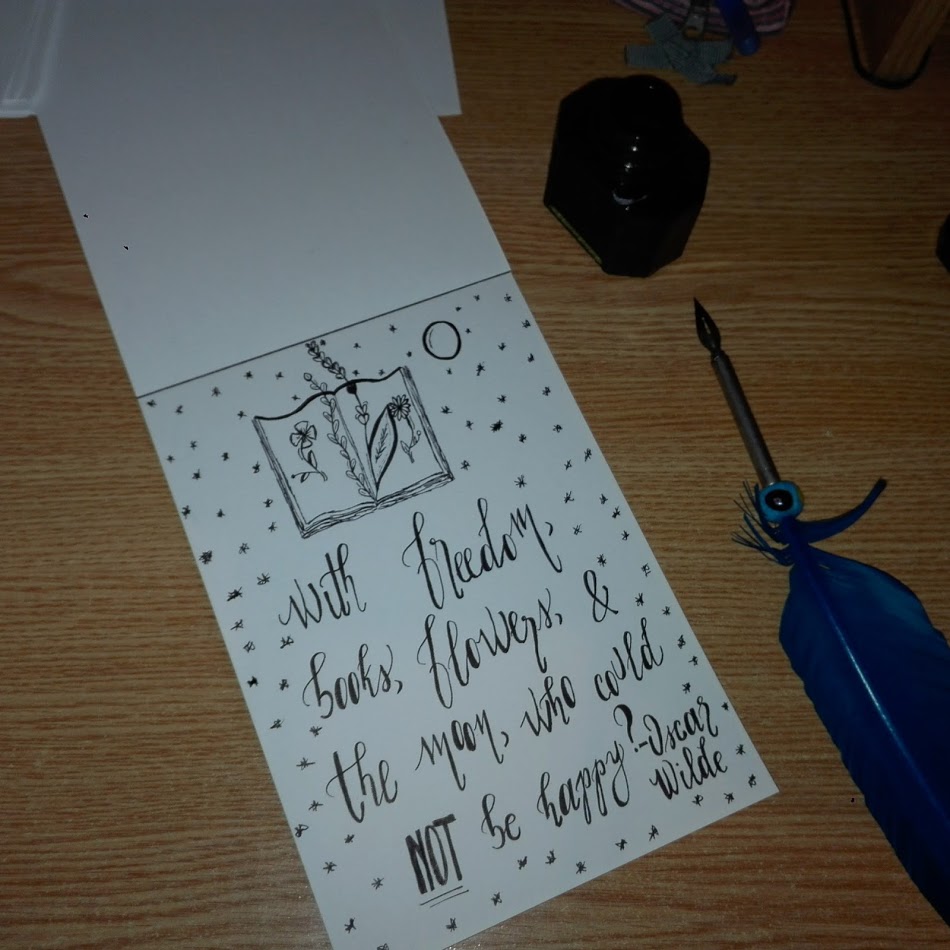 with freedom,
books, flowers, &
the moon, who could
NOT be happy?
-Oscar
Wilde